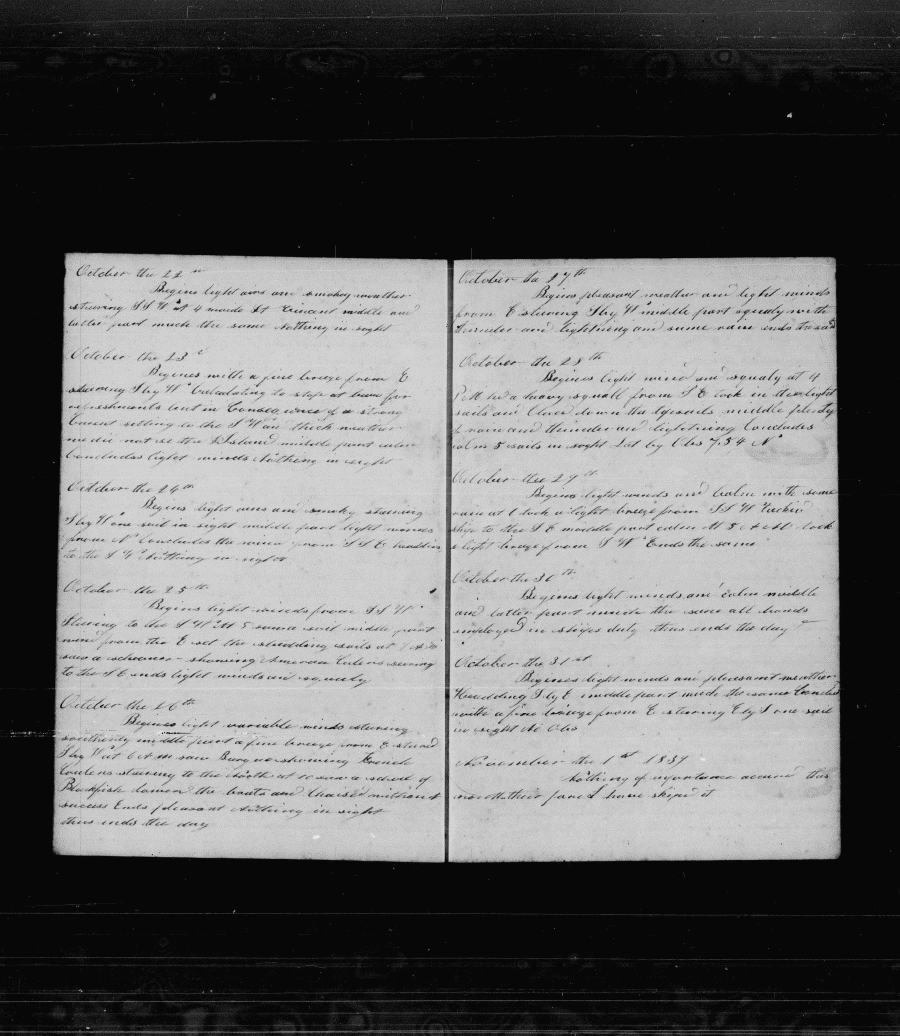 October the 22nd
Begins light airs and smokey weather
stearing SSW at 4 made St Vincent middle and
latter part much the same Nothing in sight
October the 23d
Begines with a fine breeze from E
stearing S by W Calculating to stop at brava for
refreshments but in Consequence of a strong
Current setting to the SW and thick weather
we did not se the Island middle part calm
Concludes light winds Nothing in sight
October the 24th
Begins light airs and smoky stearing
S by W one sail in sight middle part light winds
from N Concludes the wind from SSE heading
to the SW Nothing in sight
October the 25th
Begins light winds from SSW
Stearing to the SW at 5 saw a sail middle part
wind from the E set the studding sails at AM
saw a schooner showing American Colers stearing
to the SE ends light winds and squaly
October the 26th
Begines light variable winds stearing
southerly middle part a fine breeze from E steard
S by W at 6 AM saw Barque showing French
Coulers stearing to the South at 10 saw a school of
Blackfish lowerd the boats and Chaised without
success Ends pleasant Nothing in sight
thus ends the day
October the 27th
Begins pleasant weather and light winds
from E stearing S by W middle part squaly with
thunder and lightning and some rain ends the same
October the 28th
Begines light wind and squaly at 4
PM had a heavy squall from SE took in the light
sails and Clued down the topsails middle plenty
of rain and thunder and lightning Concludes
calm 5 sails in sight Lat by Obs 7.54 N
October the 29th
Begins light winds and Calm with some
rain at 6 took a light breeze from SSW
ship to the SE middle part calm at 5 AM took
a light breeze from SW Ends the same
October the 30th
Begins light winds and calm middle
and latter part much the same all hands
employed in ships duty thus ends the day
October the 31st
Begines light winds and pleasant weather
Headding S by E middle part much the same Concludes
with a fine breeze from E stearing E by S one sail
in sight No Obs
November the 1st 1839
Nothing of importance accured this
twenty four hours